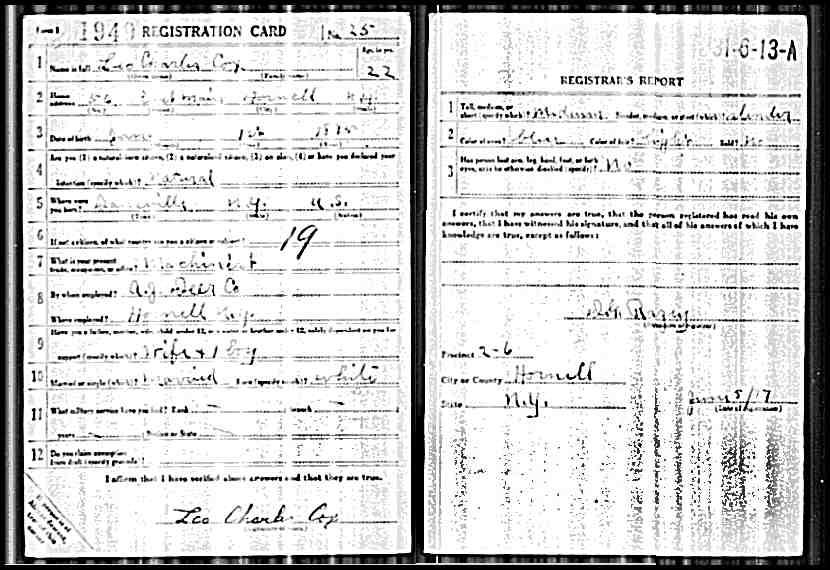 Form 1 1940 REGISTRATION CARD No. 25
1 Name in full Leo Charles Cox Age, in yrs. 22
(Given name) (Family name)
2 Home address 56 East Main Hornell N.Y.
3 Date of birth June
4 Are you (1) a natural-born citizen, (2) a naturalized citizen, (3) an alien, (4) or have you declared your
intention (specify which)? Natural
5 Where were you born? Dansville N.Y. U.S.
(Town) (State) (Nation)
6 If not a citizen, of what country are you a citizen or subject?
19
7 What is your present trade, occupation, or office? Machinist
8 By whom employed? A.J. Deer Co
Where employed? Hornell N.Y.
9 Have you a father, mother, wife, child under 12, or a sister or brother under 12, solely dependent on you for
support (specify which)? Wife + 1 Boy
10 Married or single (which)? Married Race (specify which)? White
11 What military service have you had? Rank – ; branch –
years – ; Nation or State –
12 Do you claim exemption
from draft (specify grounds)?
I affirm that I have verified above answers and that they are true.
Leo Charles Cox
31-6-13-A
REGISTRAR'S REPORT
1 Tall, medium, or short (specify which)? Medium Slender, medium, or stout (which)? Slender
2 Color of eyes? Blue Color of hair? Bald? No
3 Has person lost arm, leg, hand, foot, or both
eyes, or is he otherwise disabled (specify)? No
I certify that my answers are true, that the person registered has read his own
answers, that I have witnessed his signature, and that all of his answers of which I have
knowledge are true, except as follows:
(Signature of registrar)
Precinct 2-6
City or County Hornell
State N.Y. June 5/17
(Date of registration)